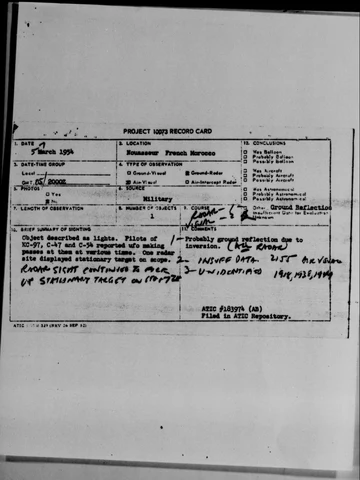 PROJECT 10073 RECORD CARD
1. DATE
5 March 1954
2. LOCATION
Nouasseur French Morocco
12. CONCLUSIONS
□ Was Balloon
□ Probably Balloon
□ Possibly Balloon
3. DATE-TIME GROUP
Local
GMT 05/2000Z
4. TYPE OF OBSERVATION
□ Ground-Visual
Ground-Radar
Air-Visual
□ Air-Intercept Radar
□ Was Aircraft
□ Probably Aircraft
□ Possibly Aircraft
5. PHOTOS
□ Yes
No
6. SOURCE
Military
□ Was Astronomical
□ Probably Astronomical
□ Possibly Astronomical
7. LENGTH OF OBSERVATION
8. NUMBER OF OBJECTS
1
9. COURSE
RADAR
VISUAL
Other Ground Reflection
Insufficient Data for Evaluation
Unknown
10. BRIEF SUMMARY OF SIGHTING
Object described as lights. Pilots of
KC-97, C-47 and C-54 reported ufo making
passes at them at various times. One radar
site displayed stationary target on scope.
RADAR SIGHT CONTINUED TO PICK
UP STATIONARY TARGET ON
11. COMMENTS
1- Probably ground reflection due to
inversion. RADAR)
2- INSUFF DATA 2155 AIR VISUAL
3- UNIDENTIFIED
ATIC #183974 (AB)
Filed in ATIC Repository.